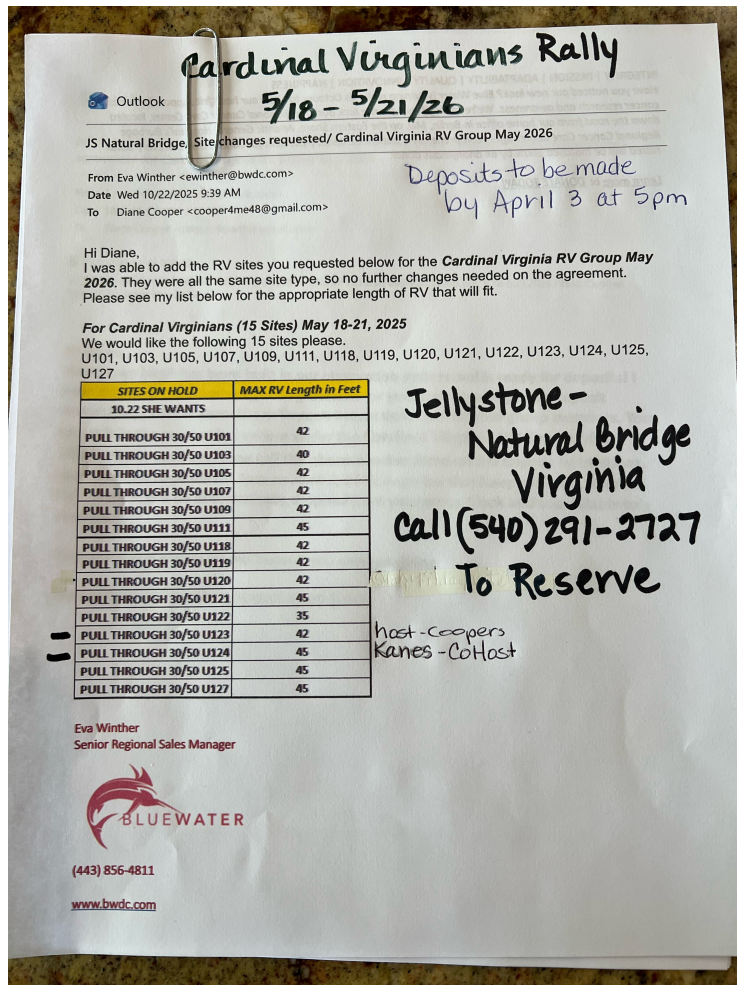 Cardinal Virginians Rally
5/18 - 5/21/26
Outlook
JS Natural Bridge, Site changes requested/ Cardinal Virginia RV Group May 2026
From Eva Winther <ewinther@bwdc.com>
Date Wed 10/22/2025 9:39 AM
To Diane Cooper <cooper4me48@gmail.com>
Deposits to be made
by April 3 at 5pm
Hi Diane,
I was able to add the RV sites you requested below for the Cardinal Virginia RV Group May
2026. They were all the same site type, so no further changes needed on the agreement.
Please see my list below for the appropriate length of RV that will fit.
For Cardinal Virginians (15 Sites) May 18-21, 2025
We would like the following 15 sites please.
U101, U103, U105, U107, U109, U111, U118, U119, U120, U121, U122, U123, U124, U125,
U127
SITES ON HOLD MAX RV Length in Feet
10.22 SHE WANTS
PULL THROUGH 30/50 U101 42
PULL THROUGH 30/50 U103 40
PULL THROUGH 30/50 U105 42
PULL THROUGH 30/50 U107 42
PULL THROUGH 30/50 U109 42
PULL THROUGH 30/50 U111 45
PULL THROUGH 30/50 U118 42
PULL THROUGH 30/50 U119 42
PULL THROUGH 30/50 U120 42
PULL THROUGH 30/50 U121 45
PULL THROUGH 30/50 U122 35
PULL THROUGH 30/50 U123 42 host-Coopers
PULL THROUGH 30/50 U124 45 Kanes-CoHost
PULL THROUGH 30/50 U125 45
PULL THROUGH 30/50 U127 45
Jellystone-
Natural Bridge
Virginia
Call (540) 291-2727
To Reserve
Eva Winther
Senior Regional Sales Manager
BLUEWATER
(443) 856-4811
www.bwdc.com